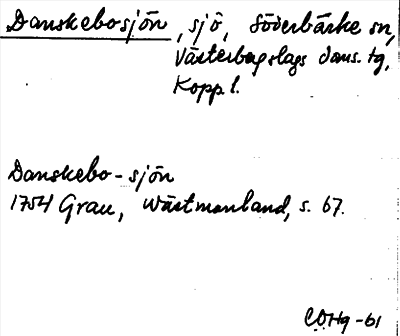 Danskebosjön, sjö, Söderbärke sn,
Västerbergslags doms. tg,
Kopp l.
Danskebo-sjön
1754 Grau, Wästmanland, s. 67.
COHg-61